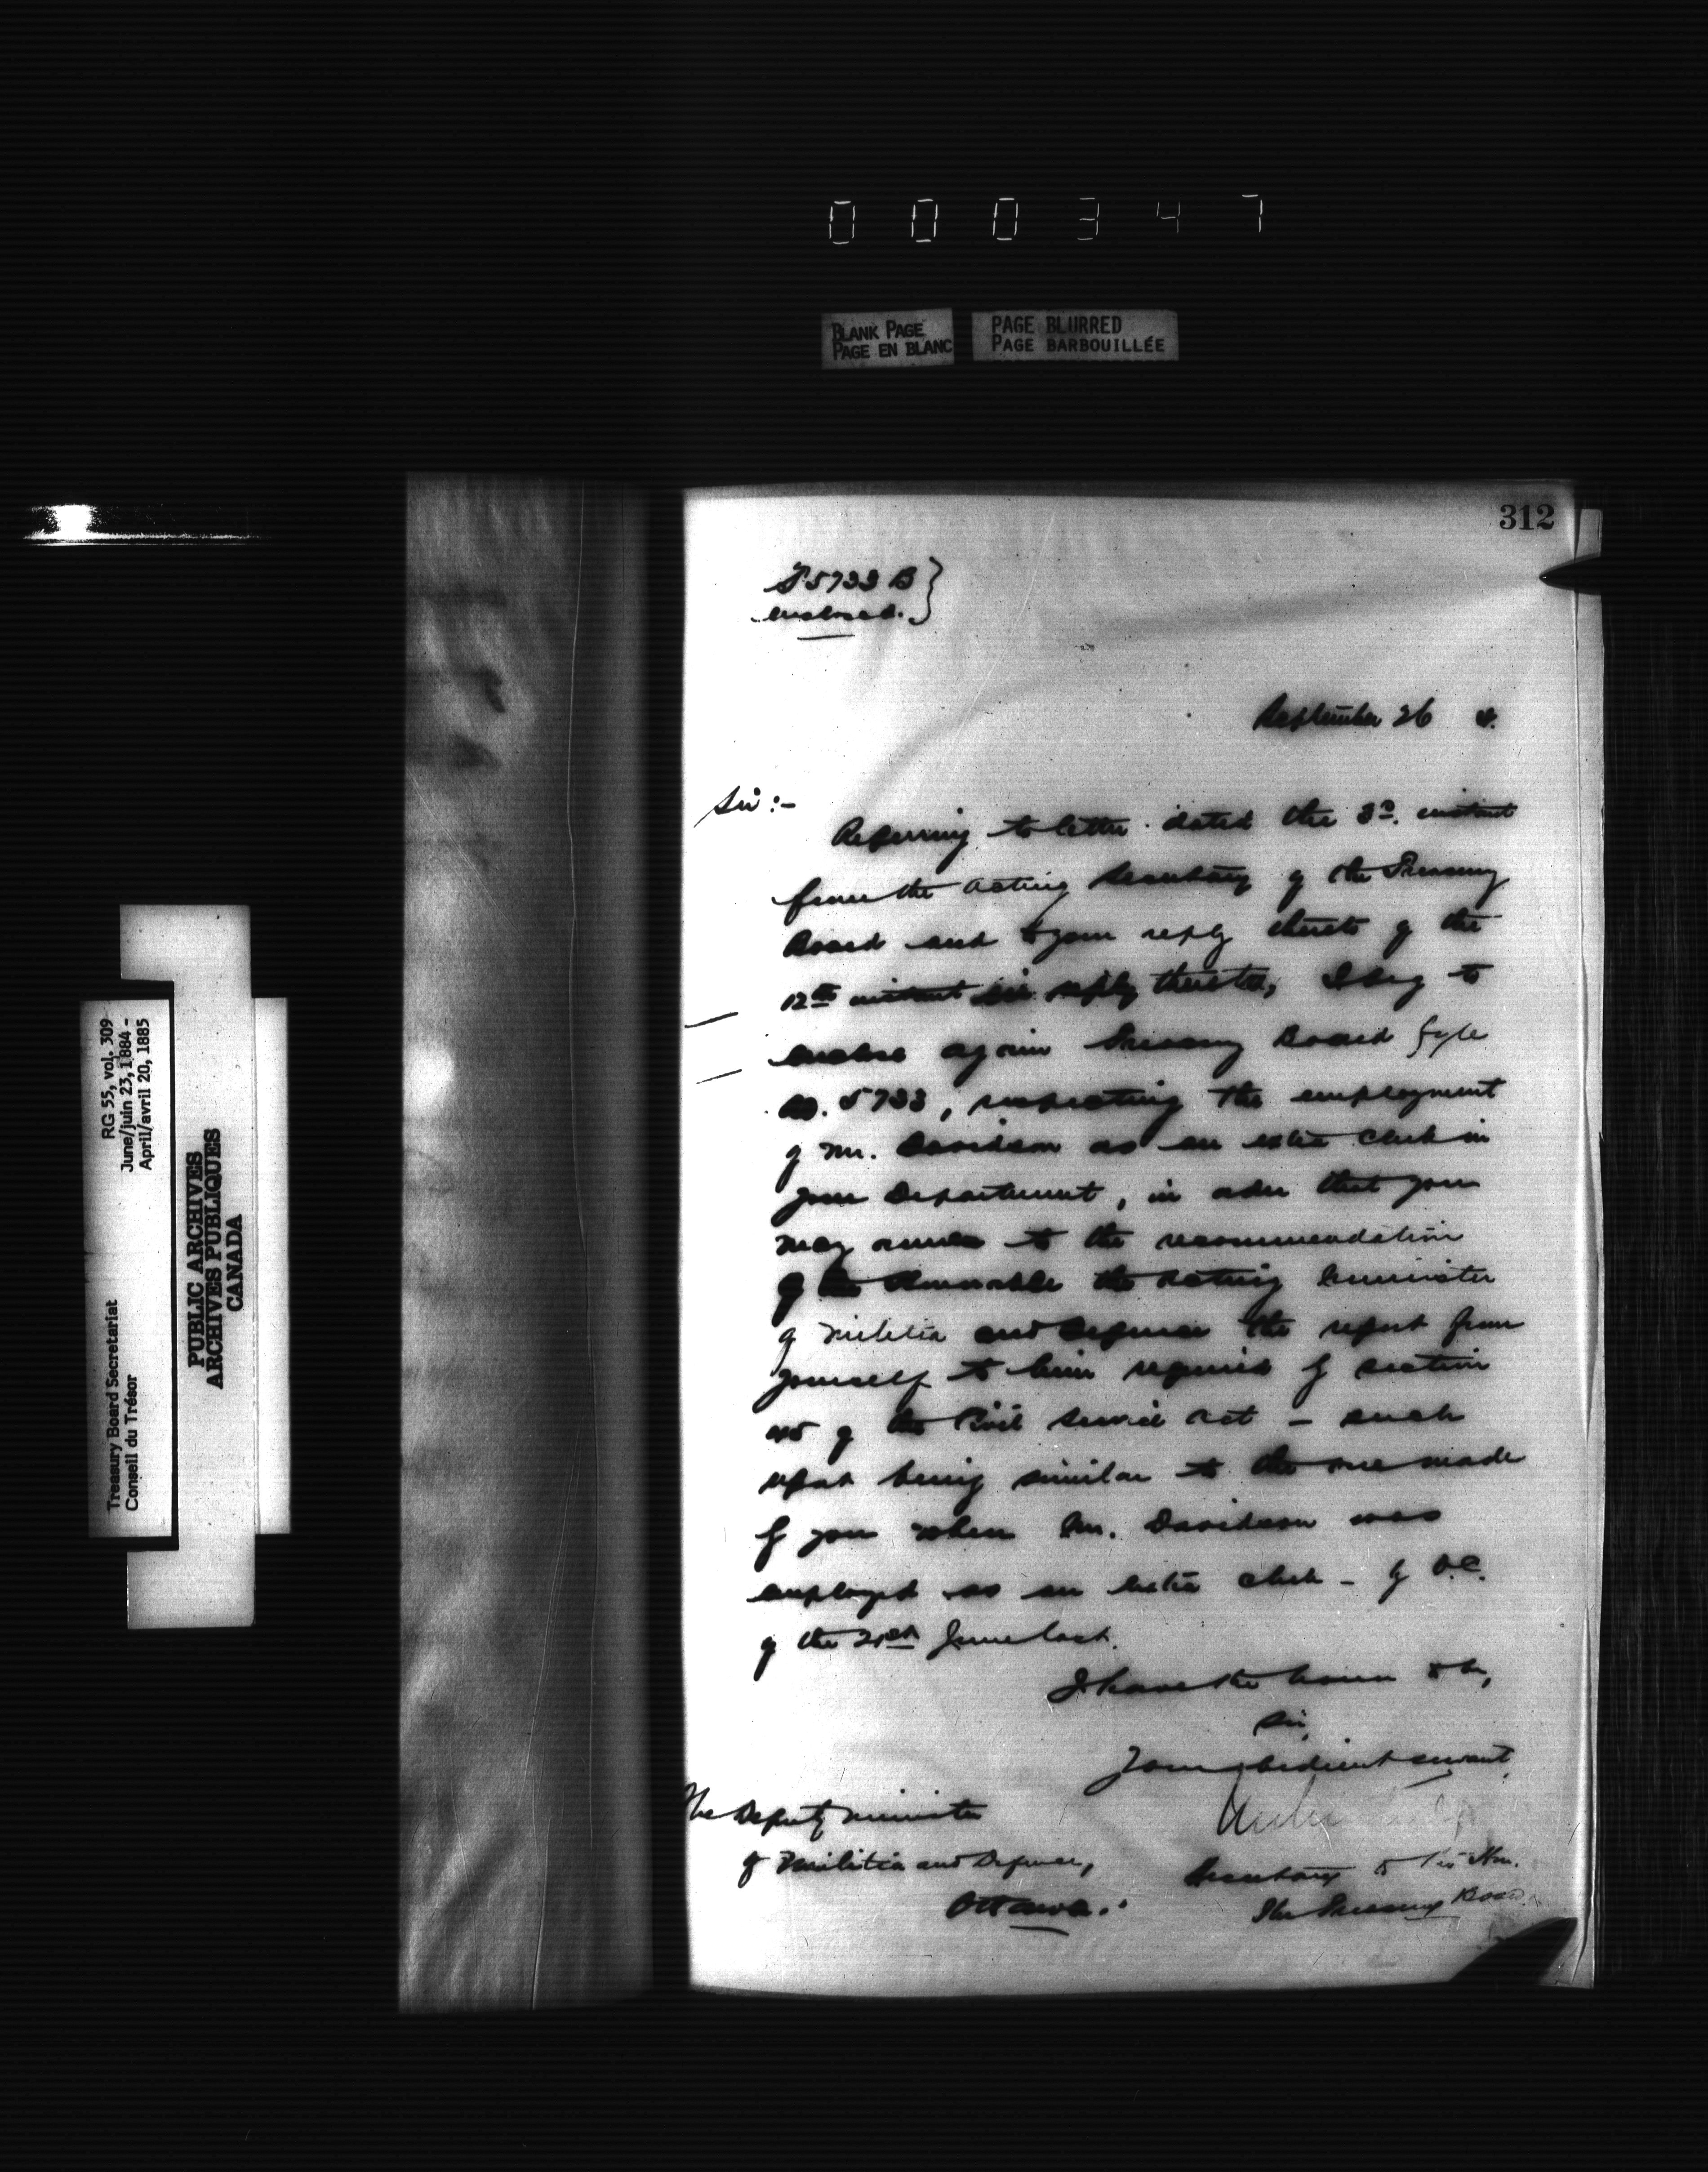 000347
BLANK PAGE
PAGE EN BLANC
PAGE BLURRED
PAGE BARBOUILLÉE
312
5733 B
enclosed.
September 26 4.
Sir:-
Referring to letter dated the 3rd. instant
from the Acting Secretary of the Treasury
Board and to your reply thereto of the
12th instant in reply thereto, I beg to
enclose again Treasury Board fyle
no. 5733, respecting the employment
of Mr. Davidson as an extra clerk in
your Department, in order that you
may annex to the recommendation
of the Honorable the Acting Minister
of Militia and Defence the report from
yourself to him required by section
45 of the Civil Service Act - such
report being similar to the one made
by you when Mr. Davidson was
employed as an extra clerk - by O.C.
of the June last.
I have the honor to be,
Sir,
Your obedient servant,
Secretary to the Hon.
The Treasury Board
The Deputy Minister
of Militia and Defence,
Ottawa.
RG 55, vol. 309
June/juin 23, 1884 -
April/avril 20, 1885
Treasury Board Secretariat
Conseil du Trésor
PUBLIC ARCHIVES
ARCHIVES PUBLIQUES
CANADA